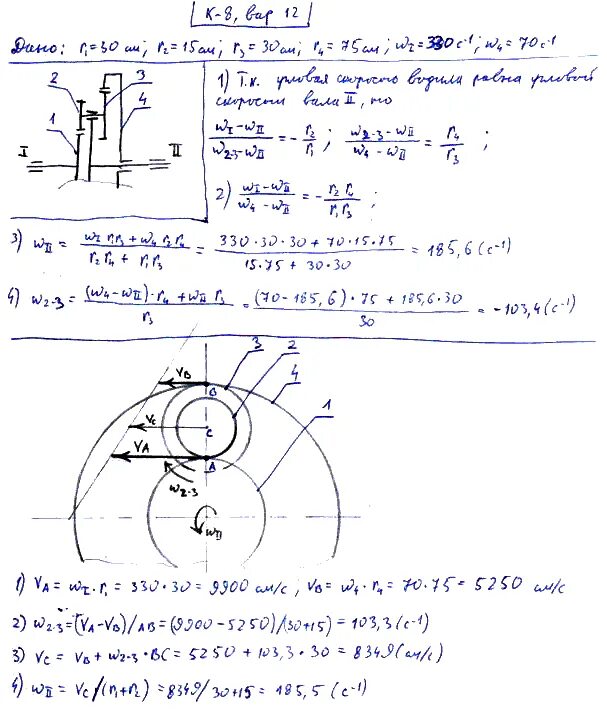 К-8, вар 12
Дано: r₁=30 см; r₂=15 см; r₃=30 см; r₄=75 см; ω_I=330 с⁻¹; ω₄=70 с⁻¹
2 3 4 1 I II
1) Т.к. угловая скорость водила равна угловой
скорости вала II, то
(ω_I-ω_II)/(ω₂₋₃-ω_II) = -r₂/r₁ ; (ω₂₋₃-ω_II)/(ω₄-ω_II) = r₄/r₃ ;
2) (ω_I-ω_II)/(ω₄-ω_II) = -(r₂ r₄)/(r₁ r₃) ;
3) ω_II = (ω_I r₁r₃ + ω₄ r₂ r₄)/(r₂ r₄ + r₁r₃) = (330·30·30+70·15·75)/(15·75+30·30) = 185,6 (с⁻¹)
4) ω₂₋₃ = ((ω₄-ω_II)·r₄+ω_II r₃)/r₃ = ((70-185,6)·75+185,6·30)/30 = -103,4 (с⁻¹)
3 2 4
V_B B
1
V_C C
V_A A
ω₂₋₃
ω_II
1) V_A = ω_I·r₁ = 330·30 = 9900 см/с ; V_B = ω₄·r₄ = 70·75 = 5250 см/с
2) ω₂₋₃=(V_A-V_B)/AB=(9900-5250)/(30+15)=103,3 (с⁻¹)
3) V_C = V_B + ω₂₋₃·BC = 5250 + 103,3·30 = 8349 (см/с)
4) ω_II = V_C/(r₁+r₂) = 8349/30+15 = 185,5 (с⁻¹)